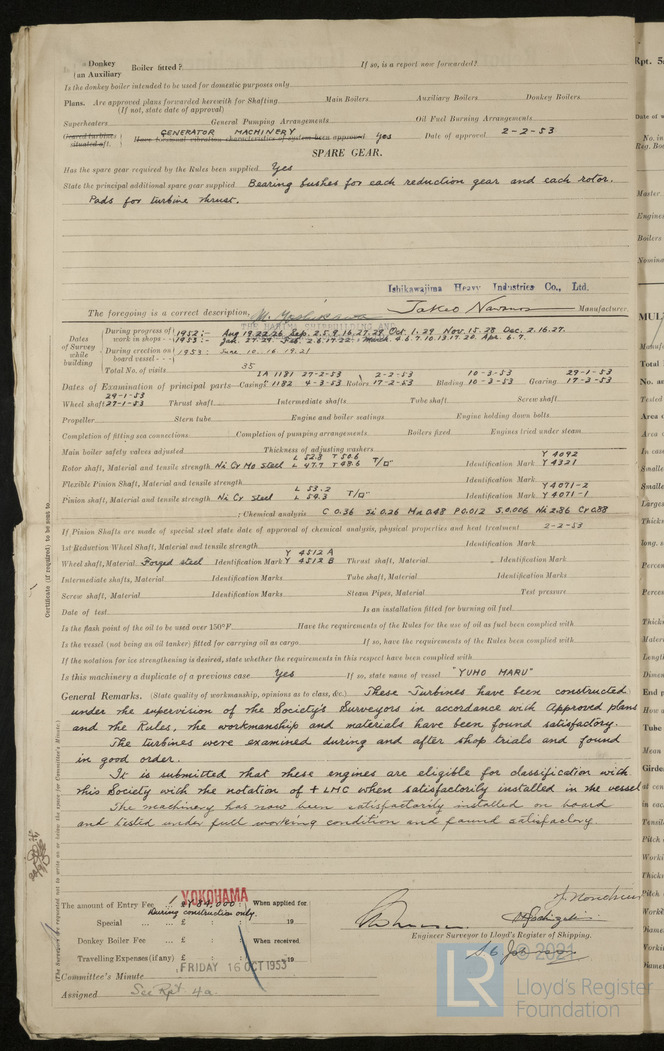 Donkey
(an Auxiliary Boiler fitted? If so, is a report now forwarded?
Is the donkey boiler intended to be used for domestic purposes only
Plans. Are approved plans forwarded herewith for Shafting Main Boilers Auxiliary Boilers Donkey Boilers
(If not, state date of approval)
Superheaters General Pumping Arrangements Oil Fuel Burning Arrangements
GENERATOR MACHINERY yes Date of approval 2-2-53
SPARE GEAR.
Has the spare gear required by the Rules been supplied Yes
State the principal additional spare gear supplied Bearing bushes for each reduction gear and each rotor.
Pads for turbine thrust.
Ishikawajima Heavy Industries Co., Ltd.
The foregoing is a correct description, Manufacturer.
THE HARIMA SHIPBUILDING AND
Dates of Survey while building
During progress of work in shops - - 1952:- Aug 19.22.26 Sep. 2.5.9.16.27.29. Oct. 1.29 Nov. 15.28 Dec. 2.16.27.
1953:- Jan. 27.29 Feb. 2.6.17.22. March. 4.6.7.10.13.17.20 Apr. 6.7.
During erection on board vessel - - - 1953: June. 10. 16 19. 21
Total No. of visits 35
SA 1181 27-2-53 2-2-53 10-3-53 29-1-53
Dates of Examination of principal parts—Casings 1182 4-3-53 Rotors 17-2-53 Blading 10-3-53 Gearing 17-3-53
29-1-53
Wheel shaft 27-1-53 Thrust shaft Intermediate shafts Tube shaft Screw shaft
Propeller Stern tube Engine and boiler seatings Engine holding down bolts
Completion of fitting sea connections Completion of pumping arrangements Boilers fixed Engines tried under steam
Main boiler safety valves adjusted Thickness of adjusting washers
L 52.8 T 50.6 Y 4092
Rotor shaft, Material and tensile strength Ni Cr Mo Steel L 47.7 T 48.6 T/□" Identification Mark Y 4321
Flexible Pinion Shaft, Material and tensile strength Identification Mark
L 53.2 Y 4071-2
Pinion shaft, Material and tensile strength Ni Cr Steel L 59.3 T/□" Identification Mark Y 4071-1
: Chemical analysis C 0.36 Si 0.26 Mn 0.48 P 0.012 S 0.006 Ni 2.86 Cr 0.88
If Pinion Shafts are made of special steel state date of approval of chemical analysis, physical properties and heat treatment 2-2-53
1st Reduction Wheel Shaft, Material and tensile strength Identification Mark
Y 4512 A
Wheel shaft, Material Forged steel Identification Mark Y 4512 B Thrust shaft, Material Identification Mark
Intermediate shafts, Material Identification Marks Tube shaft, Material Identification Marks
Screw shaft, Material Identification Marks Steam Pipes, Material Test pressure
Date of test Is an installation fitted for burning oil fuel
Is the flash point of the oil to be used over 150°F. Have the requirements of the Rules for the use of oil as fuel been complied with
Is the vessel (not being an oil tanker) fitted for carrying oil as cargo If so, have the requirements of the Rules been complied with
If the notation for ice strengthening is desired, state whether the requirements in this respect have been complied with
Is this machinery a duplicate of a previous case Yes If so, state name of vessel "YUHO MARU"
General Remarks. (State quality of workmanship, opinions as to class, &c.) These Turbines have been constructed
under the supervision of the Society's Surveyors in accordance with Approved plans
and the Rules, the workmanship and materials have been found satisfactory.
The turbines were examined during and after shop trials and found
in good order.
It is submitted that these engines are eligible for classification with
this Society with the notation of + LMC when satisfactorily installed in the vessel
The machinery has now been satisfactorily installed on board
and tested under full working condition and found satisfactory.
YOKOHAMA
The amount of Entry Fee When applied for
During construction only.
Special ... £ : : 19
Donkey Boiler Fee ... £ : : When received
Travelling Expenses (if any) £ : : 19
FRIDAY 16 OCT 1953
Committee's Minute
Assigned See Rpt. 4a.
Engineer Surveyor to Lloyd's Register of Shipping.
© 2021
LR
Lloyd's Register
Foundation
Certificate (if required) to be sent to
(The Surveyors are requested not to write on or below the space for Committee's Minute.)
Rpt. 5